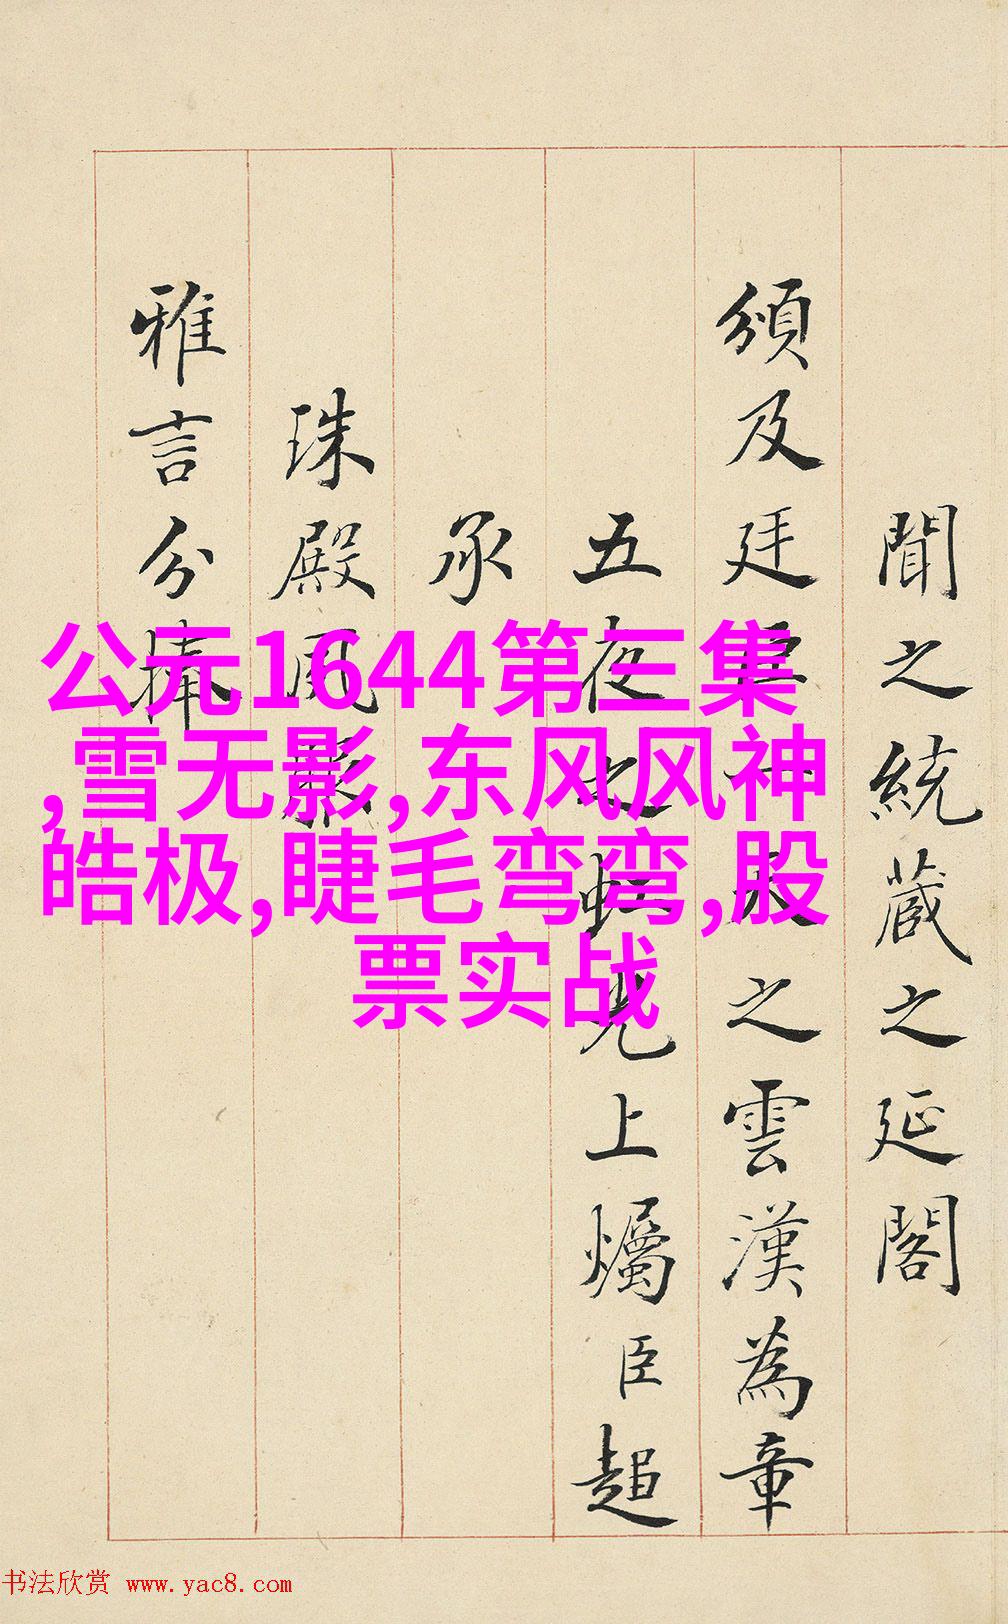 聞之統藏之延閣
頒及廷臣天之雲漢為章
五夜之虹光上爥臣超
承
珠殿風
雅言分捧
公元1644第三集
,雪无影,东风风神
皓极,睫毛弯弯,股
票实战
书法欣赏 www.yac8.com